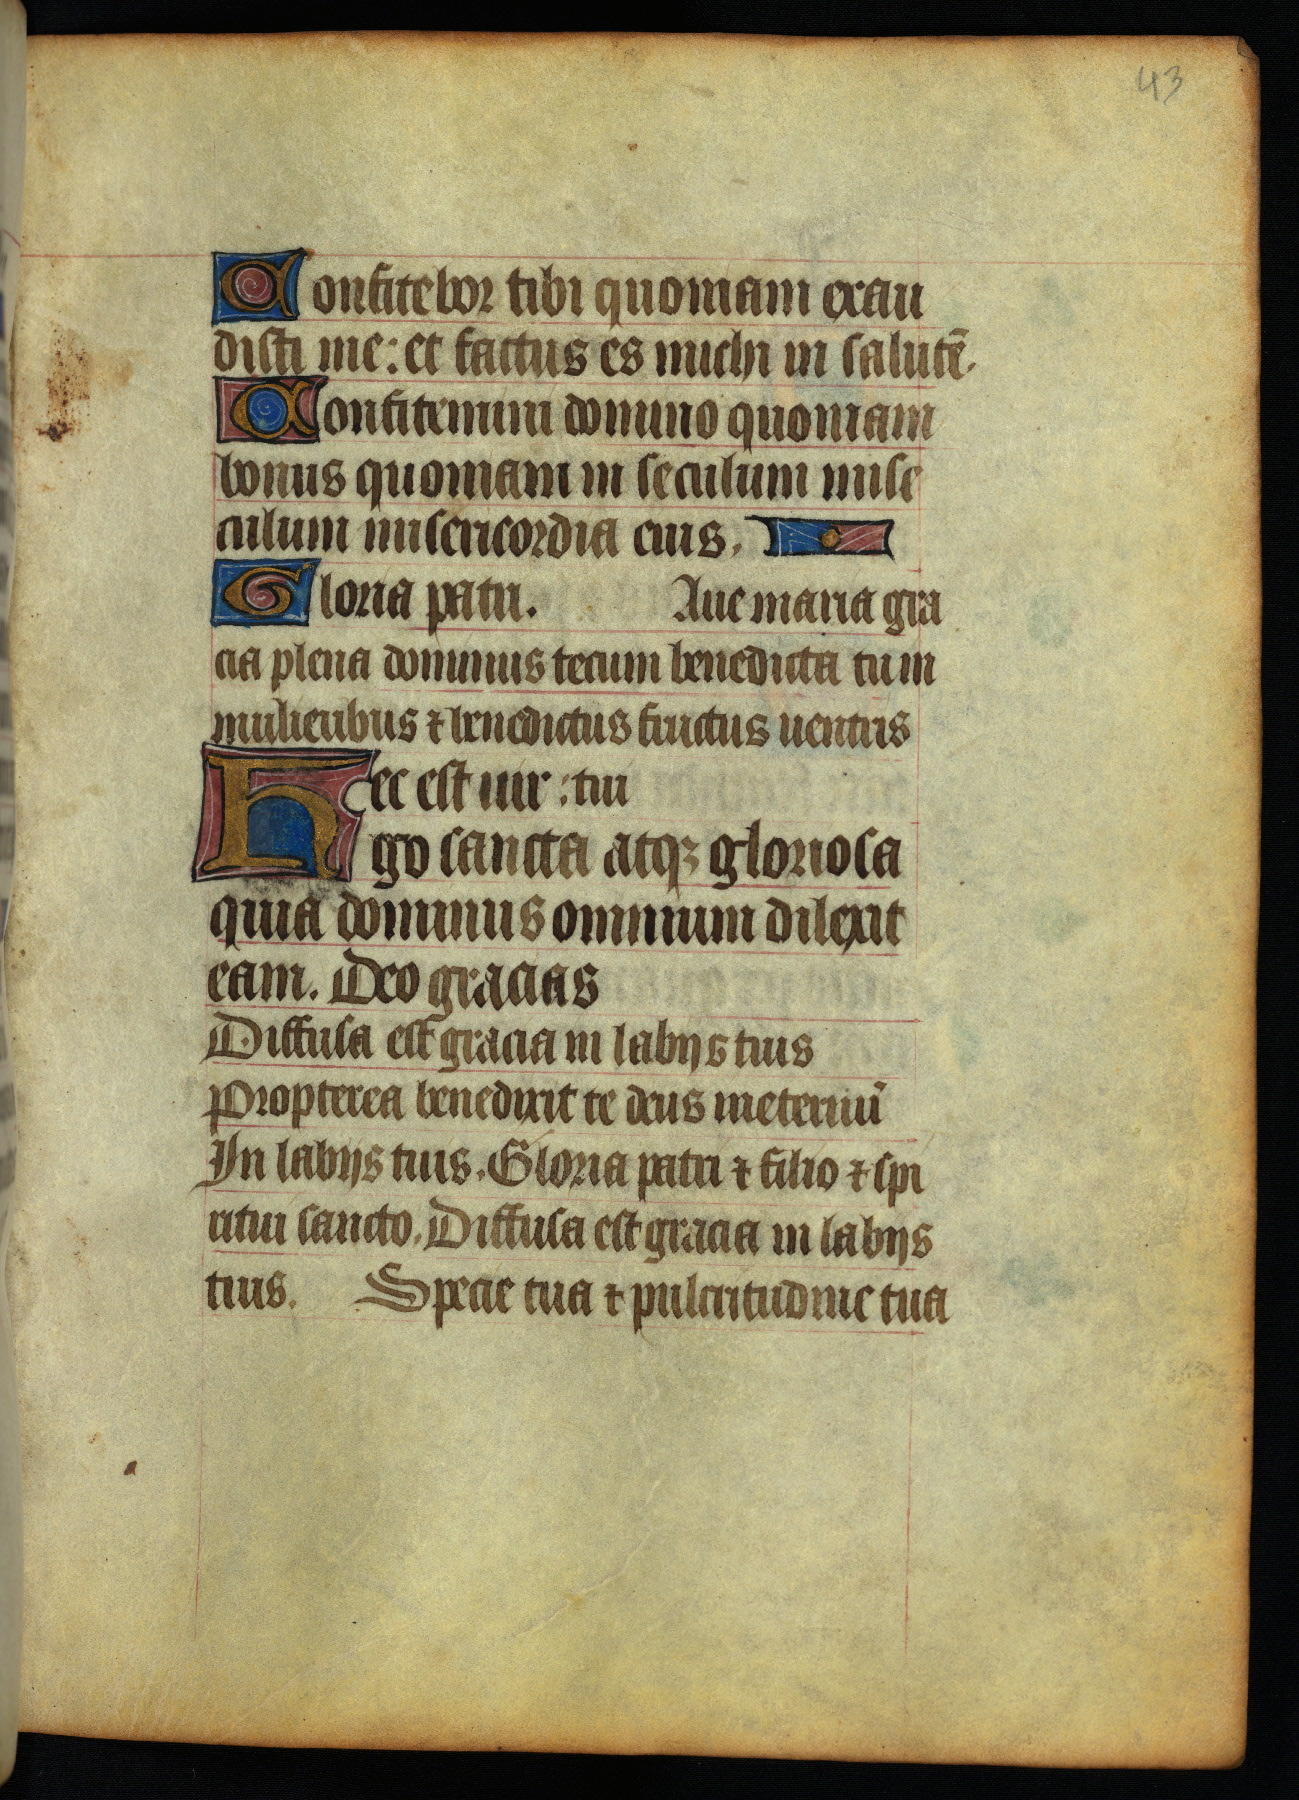 43
Confitebor tibi quoniam exau
disti me: et factus es michi in salutē.
Confitemini domino quoniam
bonus quoniam in seculum mise
culum misericordia eius.
Gloria patri. Aue maria gra
cia plena dominus tecum benedicta tu in
mulieribus ⁊ benedictus fructus uentris
Hec est uir : tui
go sancta atqꝫ gloriosa
quia dominus omnium dilexit
eam. Deo gracias
Diffusa est gracia in labijs tuis
Propterea benedixit te deus in eternū
In labijs tuis. Gloria patri ⁊ filio ⁊ spi
ritui sancto. Diffusa est gracia in labijs
tuis. Specie tua ⁊ pulcritudine tua